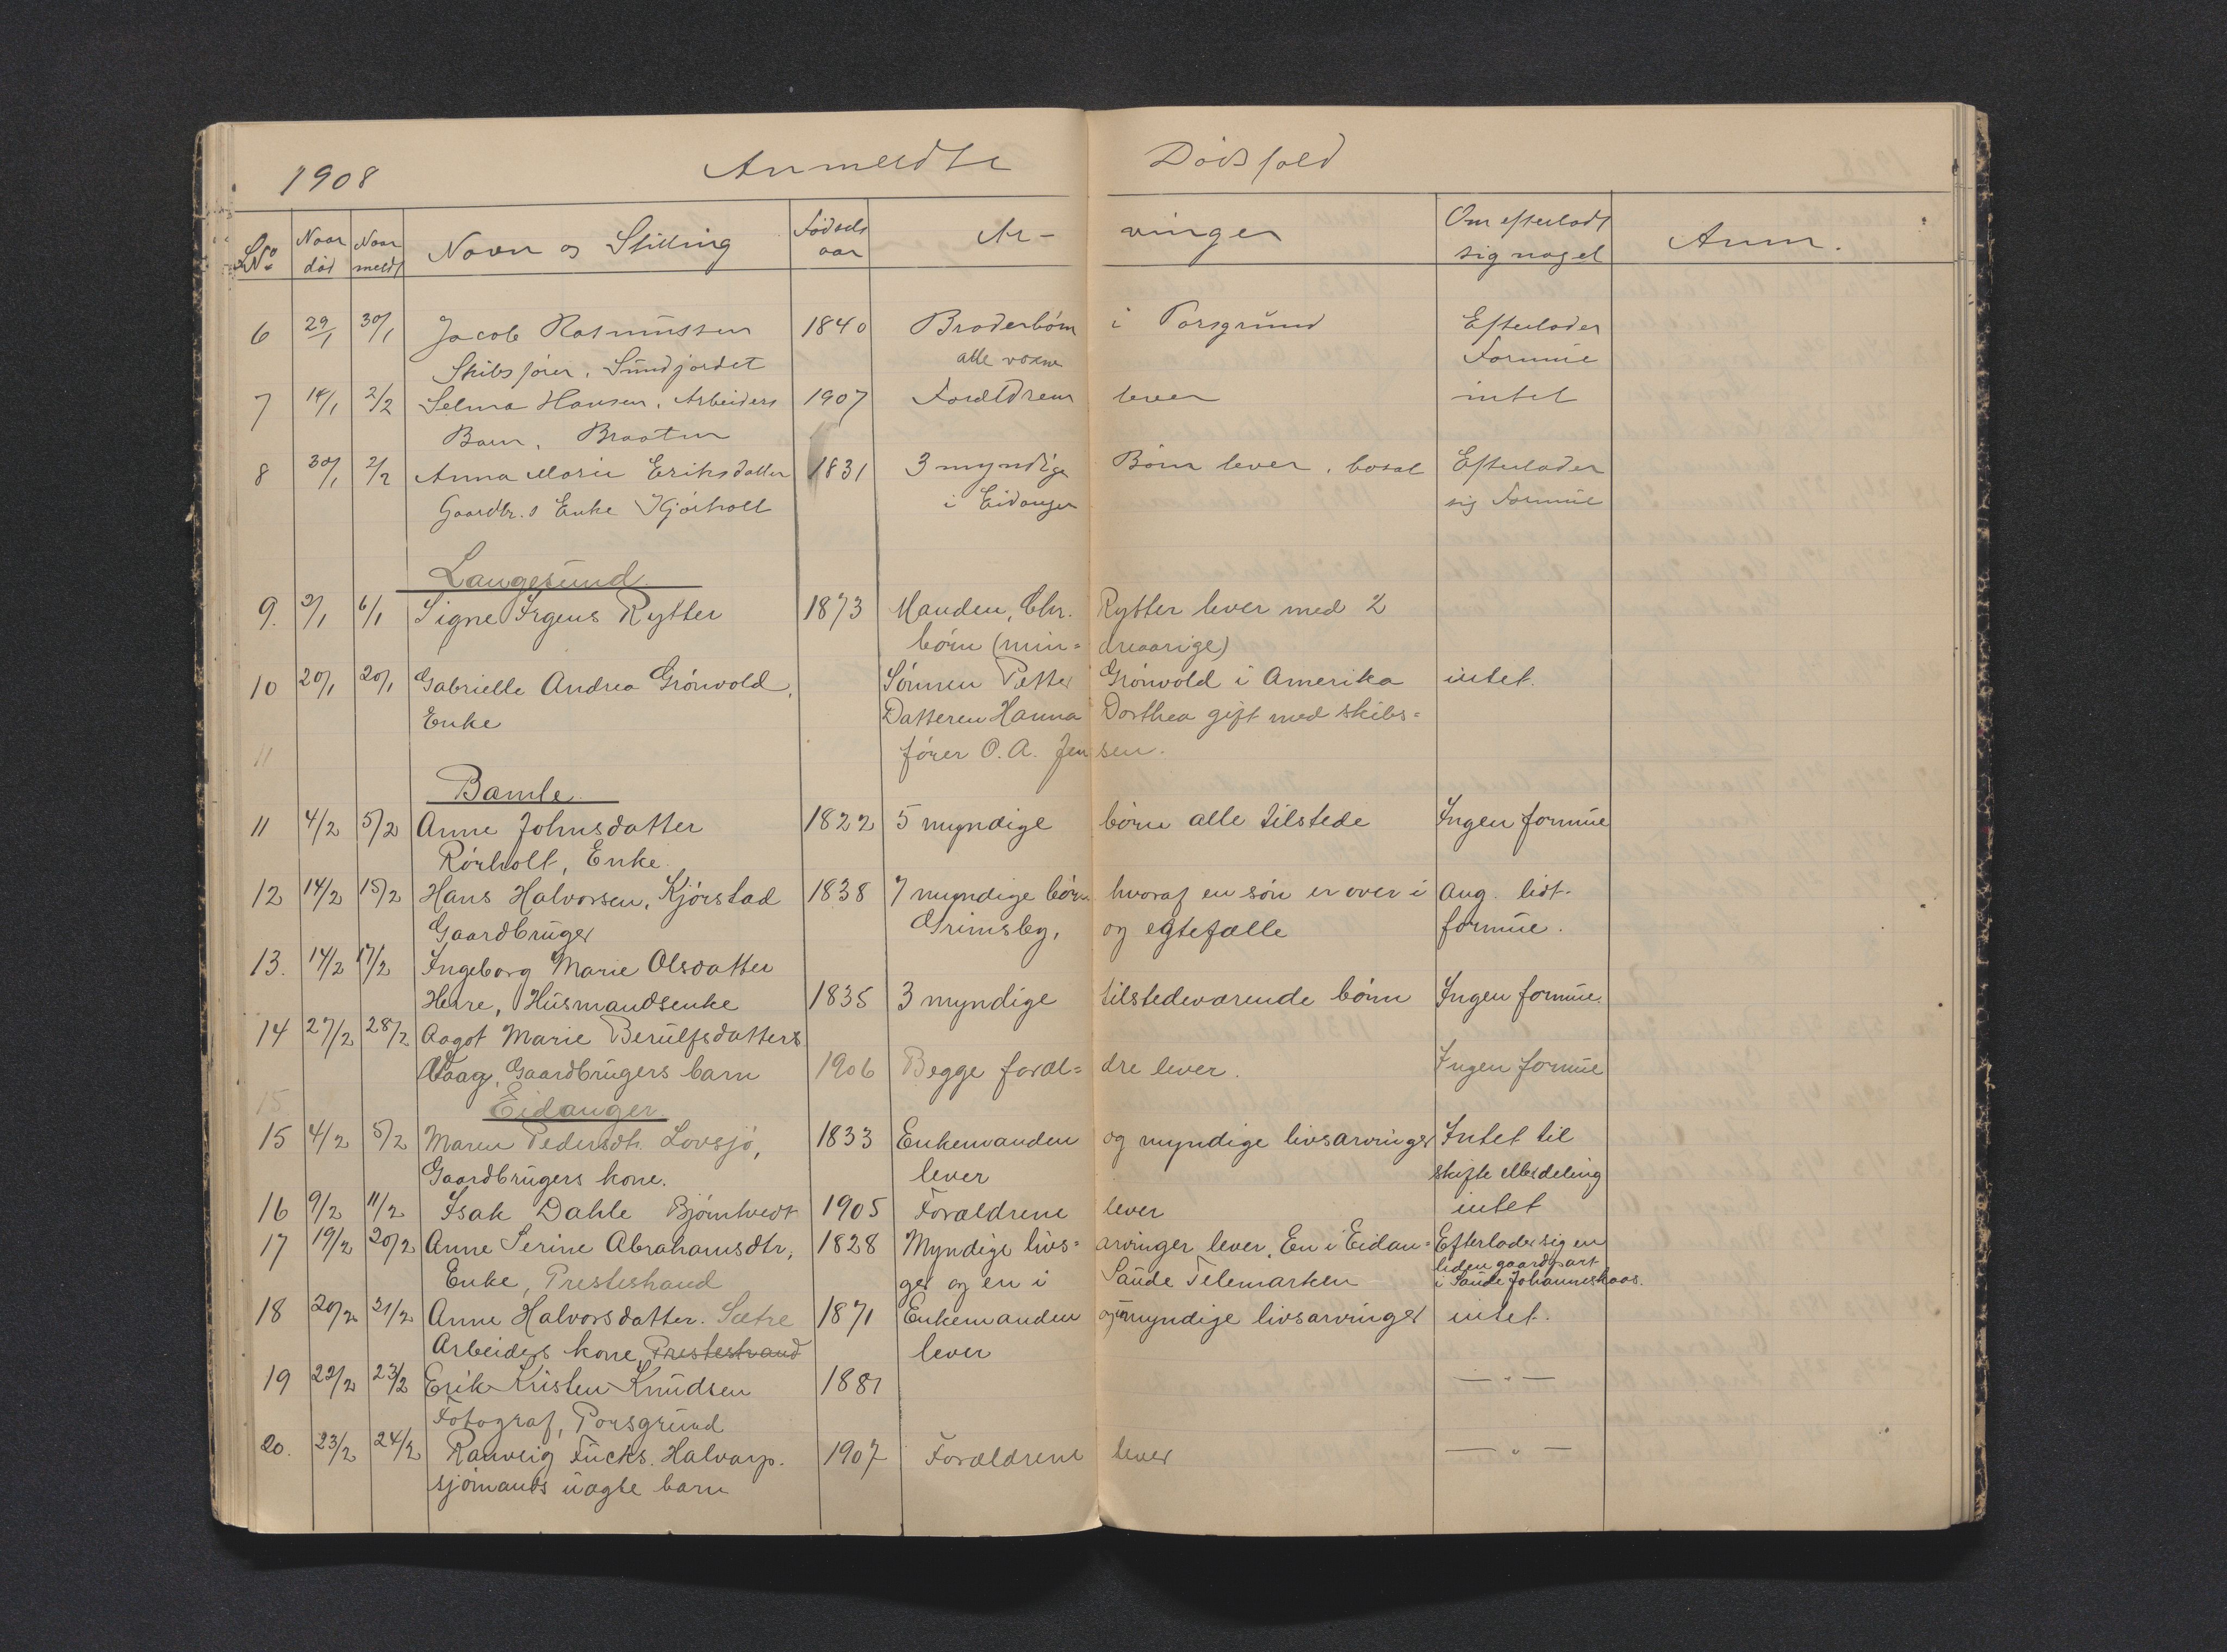 1908 Anmeldte Dödsfald
LNo Naar död Naar meldt Navn og Stilling Födsels aar Ar- vinger Om efterladt sig noget Anm.
6 29/1 30/1 Jacob Rasmüssen 1840 Broderbörn i Porsgründ Efterlader
Skibsförer, Sündjordet alle voxne Formüe
7 14/1 2/2 Selma Hansen, Arbeiders 1907 Forældrene lever intet
Barn, Braaten
8 30/1 2/2 Anna Marie Eriksdatter 1831 3 myndige Börn lever, bosat Efterlader
Gaardbr.s Enke Kjörholt i Eidanger sig Formüe
Langesund
9. 2/1 6/1 Signe Irgens Rytter 1873 Manden, Chr. Rytter lever med 2
börn (min= dreaarige)
10 20/1 20/1 Gabrielle Andrea Grönvold, Sönnen Petter Grönvold i Amerika intet.
Enke Datteren Hanna Dorthea gift med skibs=
11 förer O. A. Jensen.
Bamle
11 4/2 5/2 Anne Johnsdatter 1822 5 myndige börn alle tilstede Ingen formüe
Rörholt, Enke.
12 14/2 15/2 Hans Halvorsen, Kjörstad 1838 7 myndige börn hvoraf en sön er over i Ang. lidt
Gaardbrüger Grimsby, og egtefælle formüe.
13. 14/2 17/2 Ingeborg Marie Olsdatter
Herre, Hüsmandsenke 1835 3 myndige tilstedeværende börn Ingen formüe.
14 27/2 28/2 Aagot Marie Berülfsdatters
Vaag, Gaardbrügers barn 1906 Begge foræl= dre lever. Ingen formüe
15 Eidanger
15 4/2 5/2 Maren Pedersdtr. Lovsjö, 1833 Enkemanden og myndige livsarvinger Intet til
Gaardbrügers kone. lever skifte eller deling
16 9/2 11/2 Isak Dahle Björntvedt 1905 Forældrene lever intet
17 19/2 20/2 Anne Serine Abrahamsdtr, 1828 Myndige livs= arvinger lever, En i Eidan= Efterlader sig en
liden gaardpart
Enke, Presteshand ger og en i Saüde Telemarken i Saüde Johanneskaas.
18 20/2 21/2 Anne Halvorsdatter. Sætre 1871 Enkemanden og ümyndige livsarvinger intet.
Arbeiders kone, Prestestrand lever
19 22/2 23/2 Erik Kristen Knüdsen 1881 — „ —
Fotograf, Porsgründ
20. 23/2 24/2 Ranveig Fücks. Halvarp. 1907 Forældrene lever — „ —
sjömands üægte barn